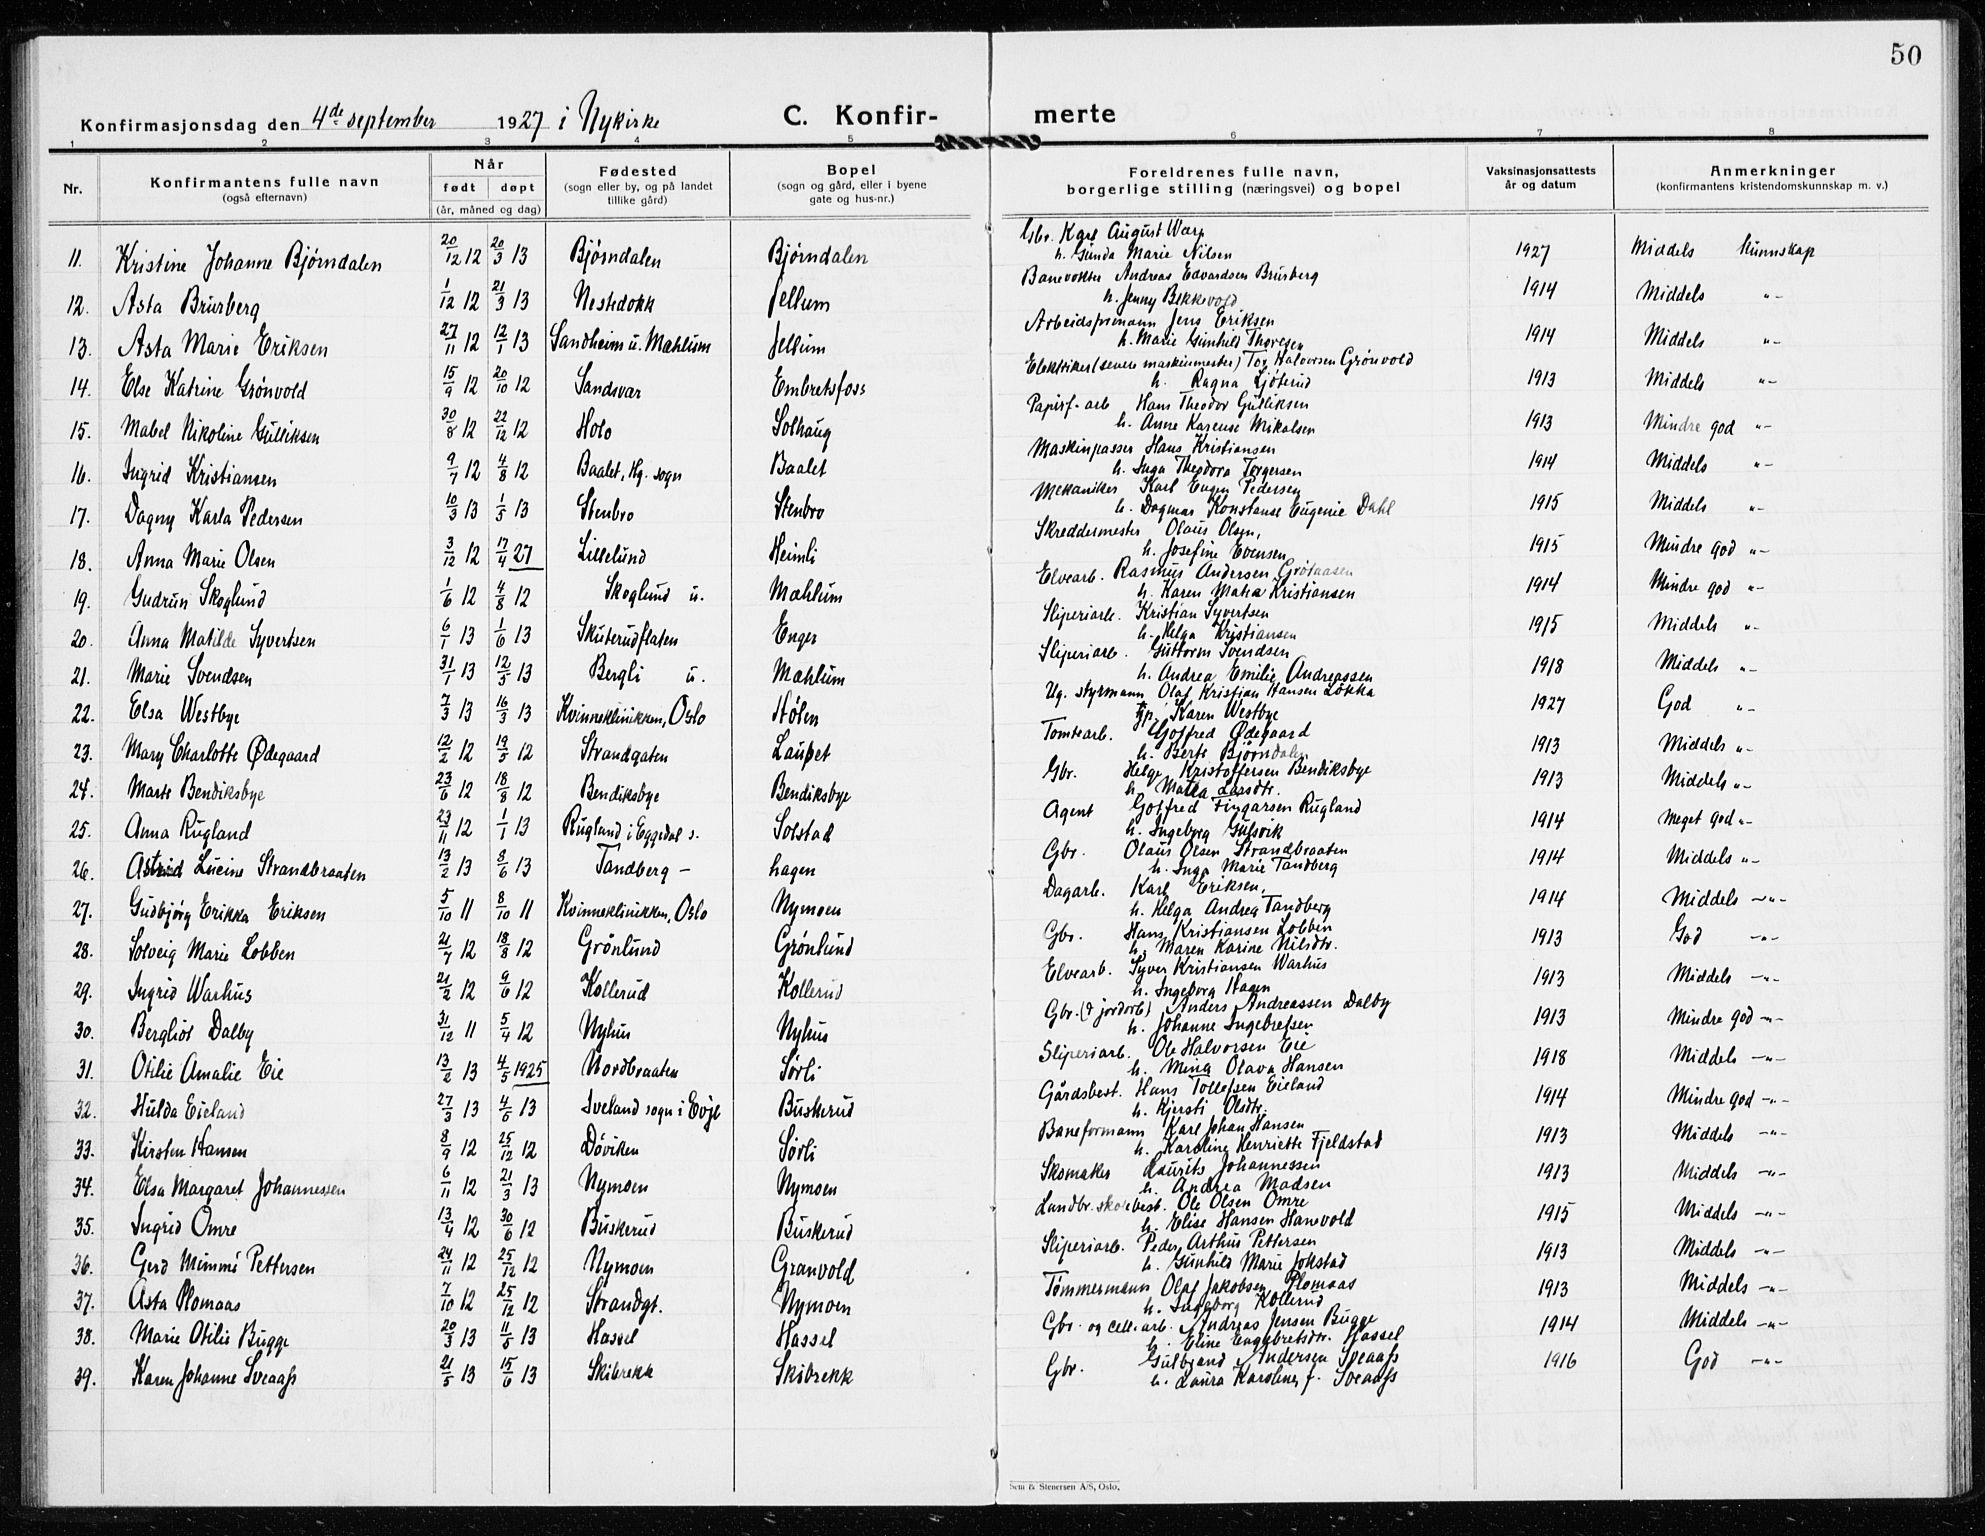 50
Konfirmasjonsdag den 4de september 1927 i Nykirke C. Konfir- merte
1 2 3 4 5 6 7 8
Nr. Konfirmantens fulle navn (også efternavn) Når født døpt (år, måned og dag) Fødested (sogn eller by, og på landet tillike gård) Bopel (sogn og gård, eller i byene gate og hus-nr.) Foreldrenes fulle navn, borgerlige stilling (næringsvei) og bopel Vaksinasjonsattests år og datum Anmerkninger (konfirmantens kristendomskunnskap m. v.)
11. Kristine Johanne Bjørndalen 20/12 12 20/3 13 Bjørndalen Bjørndalen Gbr. Karl August Warp h. Gunda Marie Nilsen 1927 Middels kunnskap
12. Asta Brurberg 1/12 12 21/3 13 Nestedokk Jellum Banevokter Andreas Edvardsen Brurberg h. Jenny Bekkevold 1914 Middels -"-
13. Asta Marie Eriksen 27/11 12 12/1 13 Sandheim u. Mæhlum Jellum Arbeidsformann Jens Eriksen h. Marie Gunhild Thoresen 1914 Middels -"-
14. Else Katrine Grönvold 15/9 12 20/10 12 Sandsvær Embretsfoss Elektriker (senere maskinmester) Tor Halvorsen Grönvold h. Ragna Ljøterud 1913 Middels -"-
15. Mabel Nikoline Gulliksen 30/8 12 22/12 12 Holo Solhaug Papirf. arb Hans Theodor Gulliksen h. Anne Karense Mikalsen 1913 Mindre god -"-
16. Ingrid Kristiansen 9/7 12 4/8 12 Baalet, Hg. sogn Baalet Maskinpasser Hans Kristiansen h. Inga Theodora Torgersen 1914 Middels -"-
17. Dagny Karla Pedersen 10/3 13 1/5 13 Stenbro Stenbro Mekaniker Karl Eugen Pedersen h. Dagmar Konstanse Eugenie Dahl 1915 Middels -"-
18. Anna Marie Olsen 3/12 12 17/4 27 Lillelund Heimli Skreddermester Olaus Olsen, h. Josefine Evensen 1915 Mindre god -"-
19. Gudrun Skoglund 1/6 12 4/8 12 Skoglund u. Mæhlum Elvearb. Rasmus Andersen Grötaasen h. Karen Matea Kristiansen 1914 Mindre god -"-
20. Anna Matilde Syvertsen 6/1 13 1/6 13 Skuterudflaten Enger Sliperiarb. Kristian Syvertsen h. Helga Kristiansen 1915 Middels -"-
21. Marie Svendsen 31/1 13 12/5 13 Bergli u. Mæhlum Sliperiarb. Guttorm Svendsen h. Andrea Emilie Andreassen 1918 Middels -"-
22. Elsa Westbye 7/3 13 16/3 13 Kvinneklinikken, Oslo Stølen Ug. styrmann Olaf Kristian Hansen Løkka Karen Westbye 1927 God -"-
23. Mary Charlotte Ødegaard 12/2 12 19/5 12 Strandgaten Laupet Tomtearb. Gotfred Ødegaard h. Berte Bjørndalen 1913 Middels -"-
24. Marte Bendiksbye 23/6 12 18/8 12 Bendiksbye Bendiksbye Gbr. Helge Kristoffersen Bendiksbye h. Matea Larsdtr. 1913 Middels -"-
25. Anna Rugland 23/11 12 1/1 13 Rugland i Eggedal s. Solstad Agent Gotfred Fingarsen Rugland h. Ingeborg Gulsvik 1914 Meget god -"-
26. Astrid Lucine Strandbraaten 13/2 13 8/6 13 Tandberg - hagen Gbr. Olaus Olsen Strandbraaten h. Inga Marie Tandberg 1914 Middels -"-
27. Gudbjørg Erikka Eriksen 5/10 11 8/10 11 Kvinneklinikken, Oslo Nymoen Dagarb. Karl Eriksen, h. Helga Andrea Tandberg 1914 Middels -"-
28. Solveig Marie Lobben 21/7 12 18/8 12 Grönlund Grönlund Gbr. Hans Kristiansen Lobben h. Maren Karine Nilsdtr. 1913 God -"-
29. Ingrid Warhus 21/2 12 9/6 12 Kollerud Kollerud Elvearb. Syver Kristiansen Warhus h. Ingeborg Hagen 1913 Middels -"-
30. Bergliot Dalby 31/12 11 5/4 12 Nyhus Nyhus Gbr. (& jordarb) Anders Andreassen Dalby h. Johanne Ingebretsen 1913 Mindre god -"-
31. Otilie Amalie Eie 13/2 13 4/5 1925 Nordbraaten Sørli Sliperiarb. Ole Halvorsen Eie h. Mina Olava Hansen 1918 Middels -"-
32. Hulda Eieland 27/3 13 4/5 13 Iveland sogn i Evje Buskerud Gårdsbest. Hans Tollefsen Eieland h. Kjersti Olsdtr. 1914 Mindre god -"-
33. Kirsten Hansen 8/9 12 25/12 12 Döviken Sørli Baneformann Karl Johan Hansen h. Karoline Henriette Fjeldstad 1913 Middels -"-
34. Elsa Margaret Johannessen 6/11 12 21/3 13 Nymoen Nymoen Skomaker Laurits Johannessen h. Andrea Madsen 1913 Middels -"-
35. Ingrid Omre 13/4 12 30/6 12 Buskerud Buskerud Landbr. skolebest. Ole Olsen Omre h. Elise Hansen Hansvold 1915 Middels -"-
36. Gerd Mimmi Pettersen 24/11 12 25/12 12 Nymoen Granvold Sliperiarb. Peder Arthur Pettersen h. Gunhild Marie Jokstad 1913 Middels -"-
37. Asta Plomaas 7/10 12 25/12 12 Strandgt. Nymoen Tømmermann Olaf Jakobsen Plomaas h. Ingeborg Kollerud 1913 Middels -"-
38. Marie Otilie Bugge 20/3 13 11/5 13 Hassel Hassel Gbr. og cell. arb. Andreas Jensen Bugge h. Eline Engebretsdr. Hassel 1914 Middels -"-
39. Karen Johanne Sveaass 21/5 13 15/6 13 Skibrekk Skibrekk Gbr. Gulbrand Andersen Sveaass h. Laura Karoline, f. Sveaass 1916 God -"-
Sem & Stenersen A/S, Oslo.